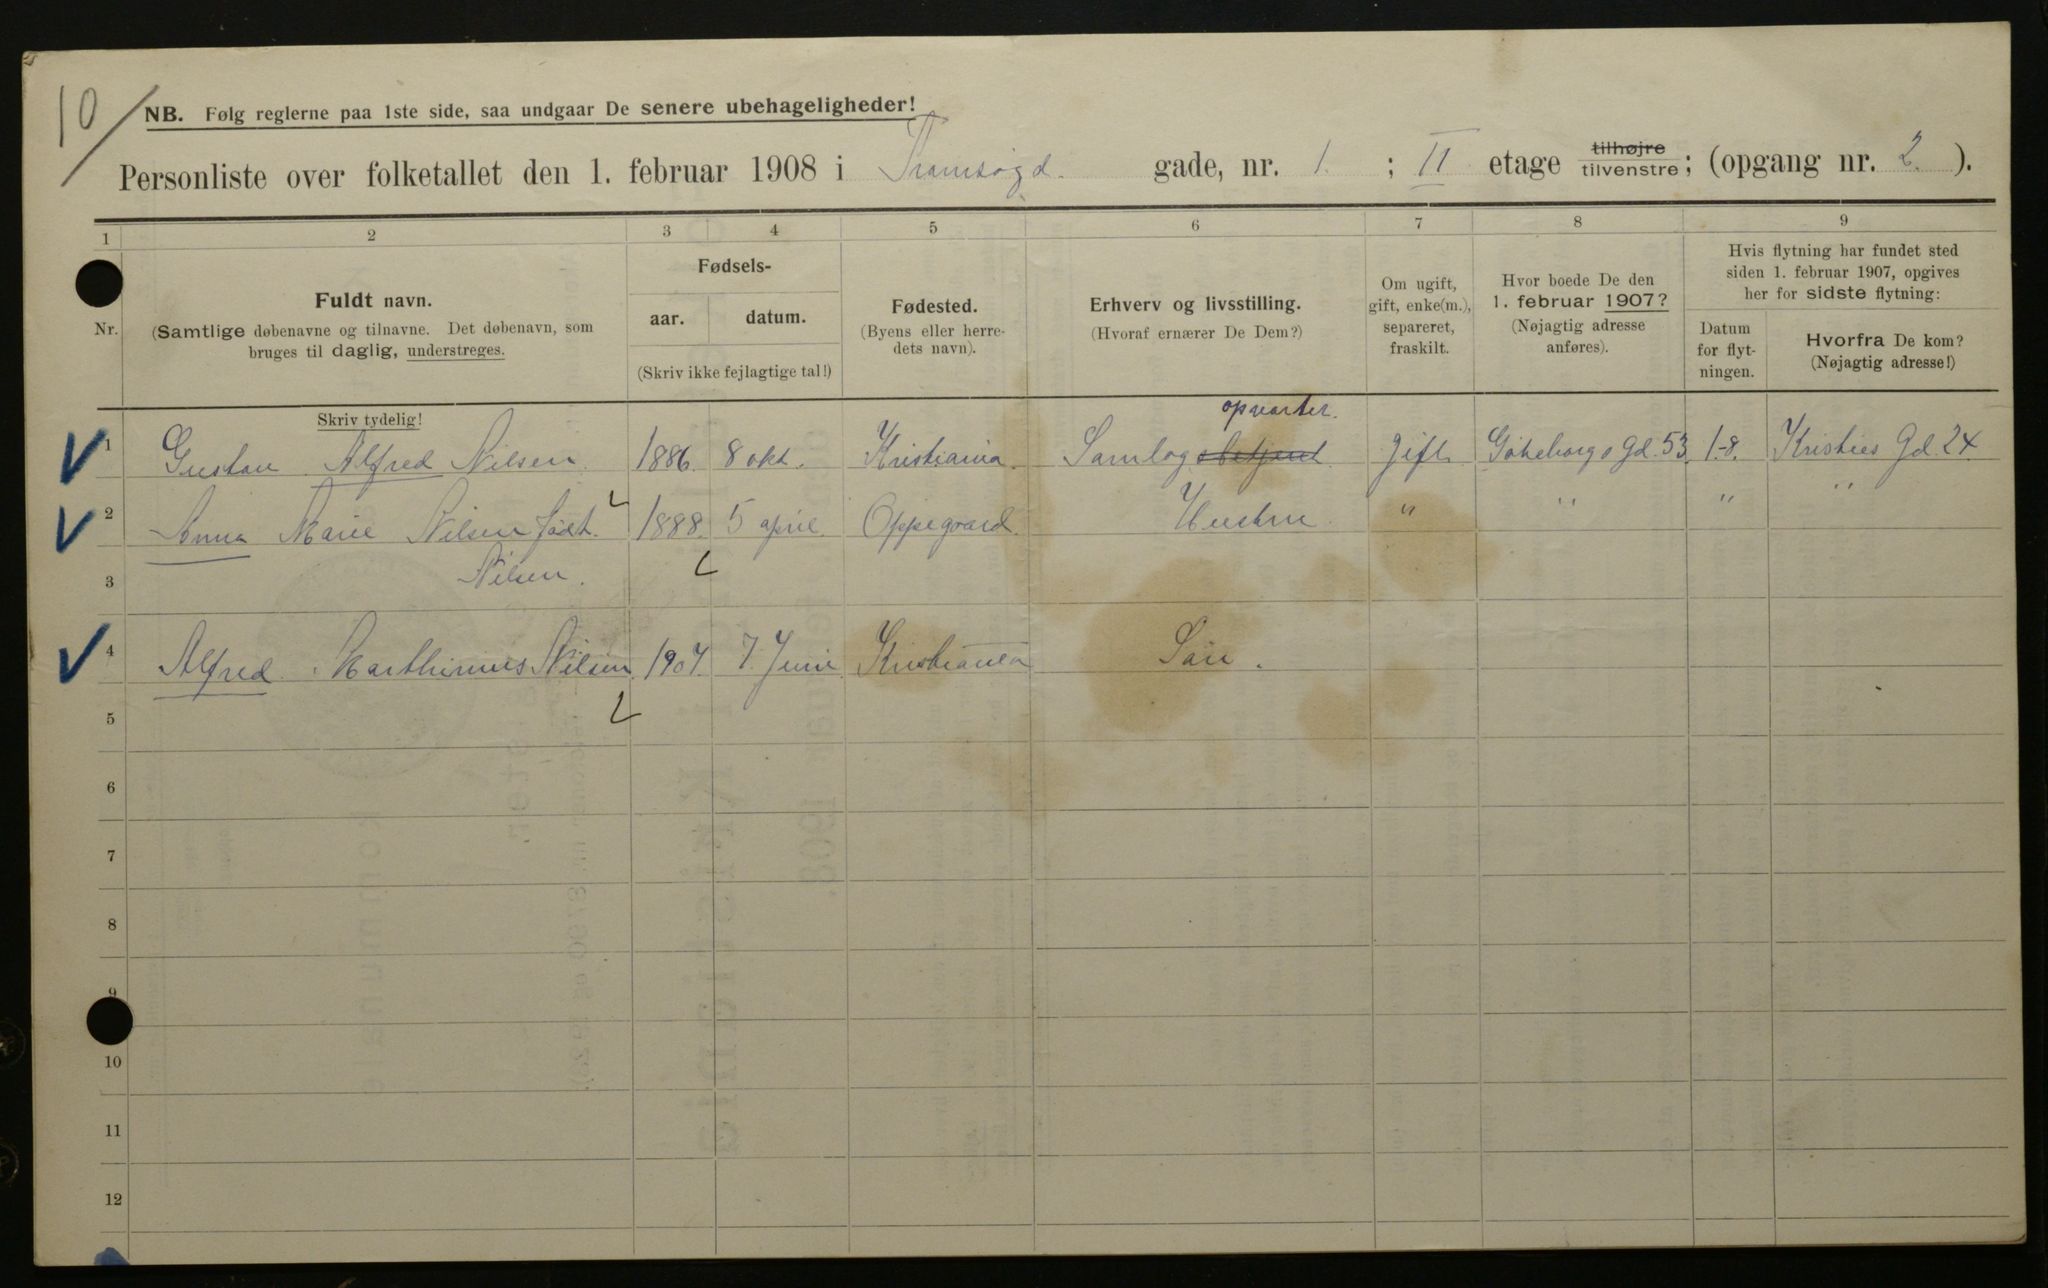 10
NB. Følg reglerne paa 1ste side, saa undgaar De senere ubehageligheder!
Personliste over folketallet den 1. februar 1908 i Tromsøgd. gade, nr. 1. ; II etage tilhøjre tilvenstre; (opgang nr. 2. ).
1 2 3 4 5 6 7 8 9
Nr.
Fuldt navn.
(Samtlige døbenavne og tilnavne. Det døbenavn, som
bruges til daglig, understreges.
Fødsels-
aar. datum.
(Skriv ikke fejlagtige tal!)
Fødested.
(Byens eller herre-
dets navn).
Erhverv og livsstilling.
(Hvoraf ernærer De Dem?)
Om ugift,
gift, enke(m.),
separeret,
fraskilt.
Hvor boede De den
1. februar 1907?
(Nøjagtig adresse
anføres).
Hvis flytning har fundet sted
siden 1. februar 1907, opgives
her for sidste flytning:
Datum
for flyt-
ningen.
Hvorfra De kom?
(Nøjagtig adresse!)
Skriv tydelig!
opvarter.
1 Gustav Alfred Nilsen 1886. 8 okt. Kristiania. Samlagsbetjent. gift. Göteborgs Gd. 53. 1-8. Kristies Gd. 24.
2 Anna Marie Nilsen født. 1888. 5 april. Oppegaard. Hustru. " " " "
3 Nilsen.
4 Alfred Marthinius Nilsen. 1907. 7. Juni Kristiania Søn.
5
6
7
8
9
10
11
12